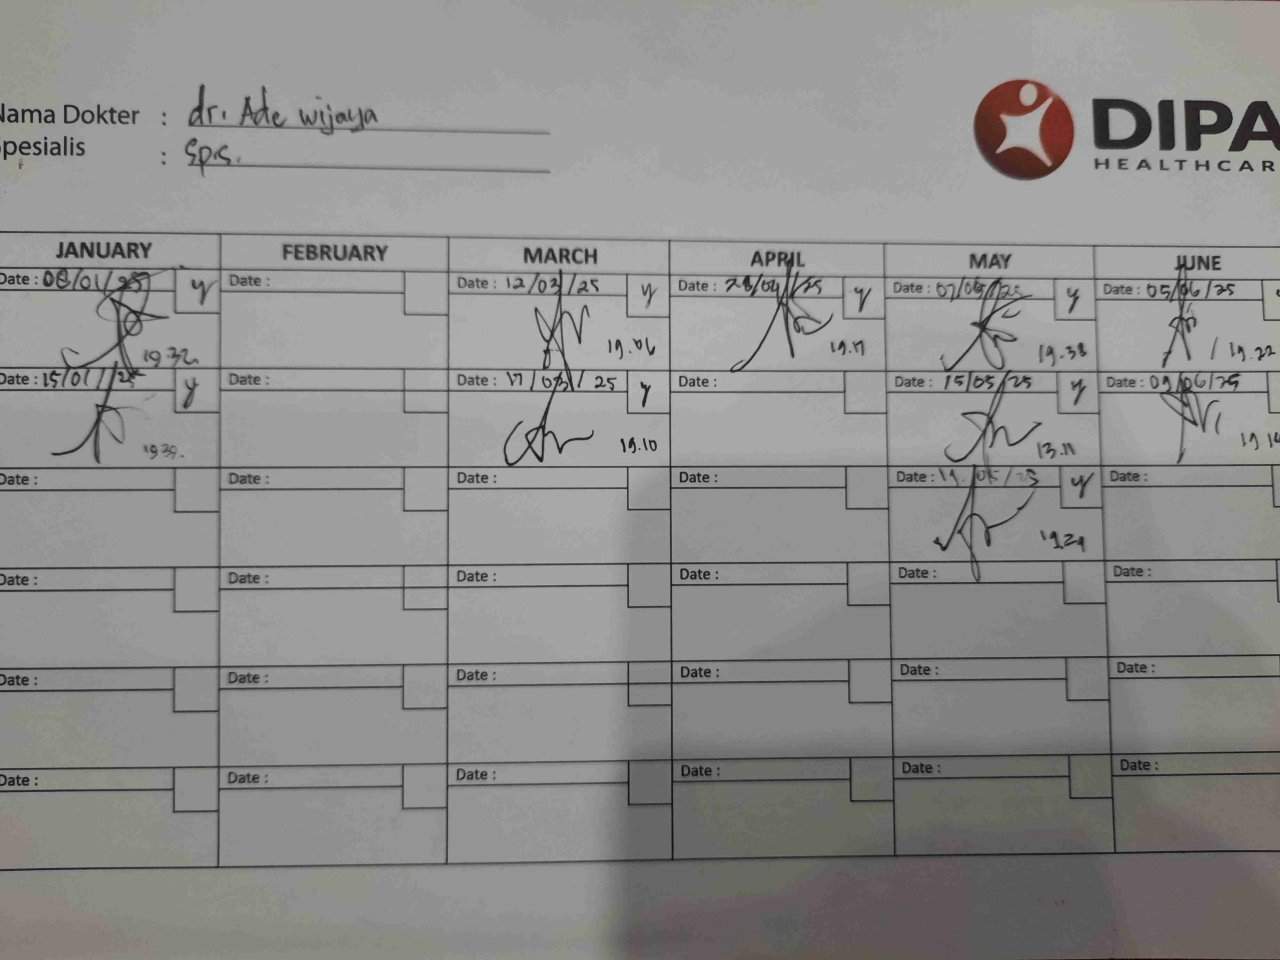 Nama Dokter : dr. Ade wijaya
Spesialis : Sp.S.
DIPA
HEALTHCAR
JANUARY FEBRUARY MARCH APRIL MAY JUNE
Date : 08/01/25 y Date : Date : 12/03/25 y Date : 28/04/25 y Date : 07/05/25 y Date : 05/06/25
19.32 19.06 19.17 19.38 19.22
Date : 15/01/25 y Date : Date : 17/03/25 y Date : Date : 15/05/25 y Date : 09/06/25
19.39. 19.10 13.11 19.14
Date : Date : Date : Date : Date : 19/05/25 y Date :
19.29
Date : Date : Date : Date : Date : Date :
Date : Date : Date : Date : Date : Date :
Date : Date : Date : Date : Date : Date :